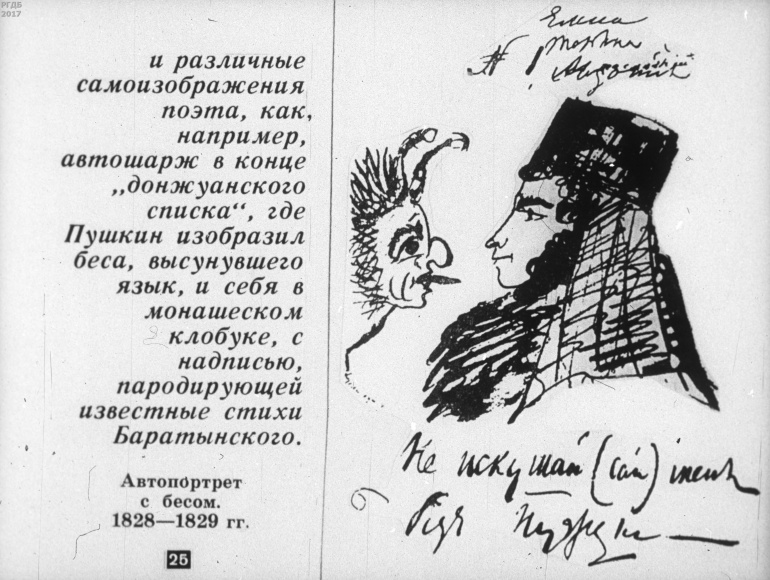 РГДБ
2017
и различные
самоизображения
поэта, как,
например,
автошарж в конце
„донжуанского
списка“, где
Пушкин изобразил
беса, высунувшего
язык, и себя в
монашеском
клобуке, с
надписью,
пародирующей
известные стихи
Баратынского.
Автопортрет
с бесом.
1828—1829 гг.
25
Не искушай (сай) меня
без нужды